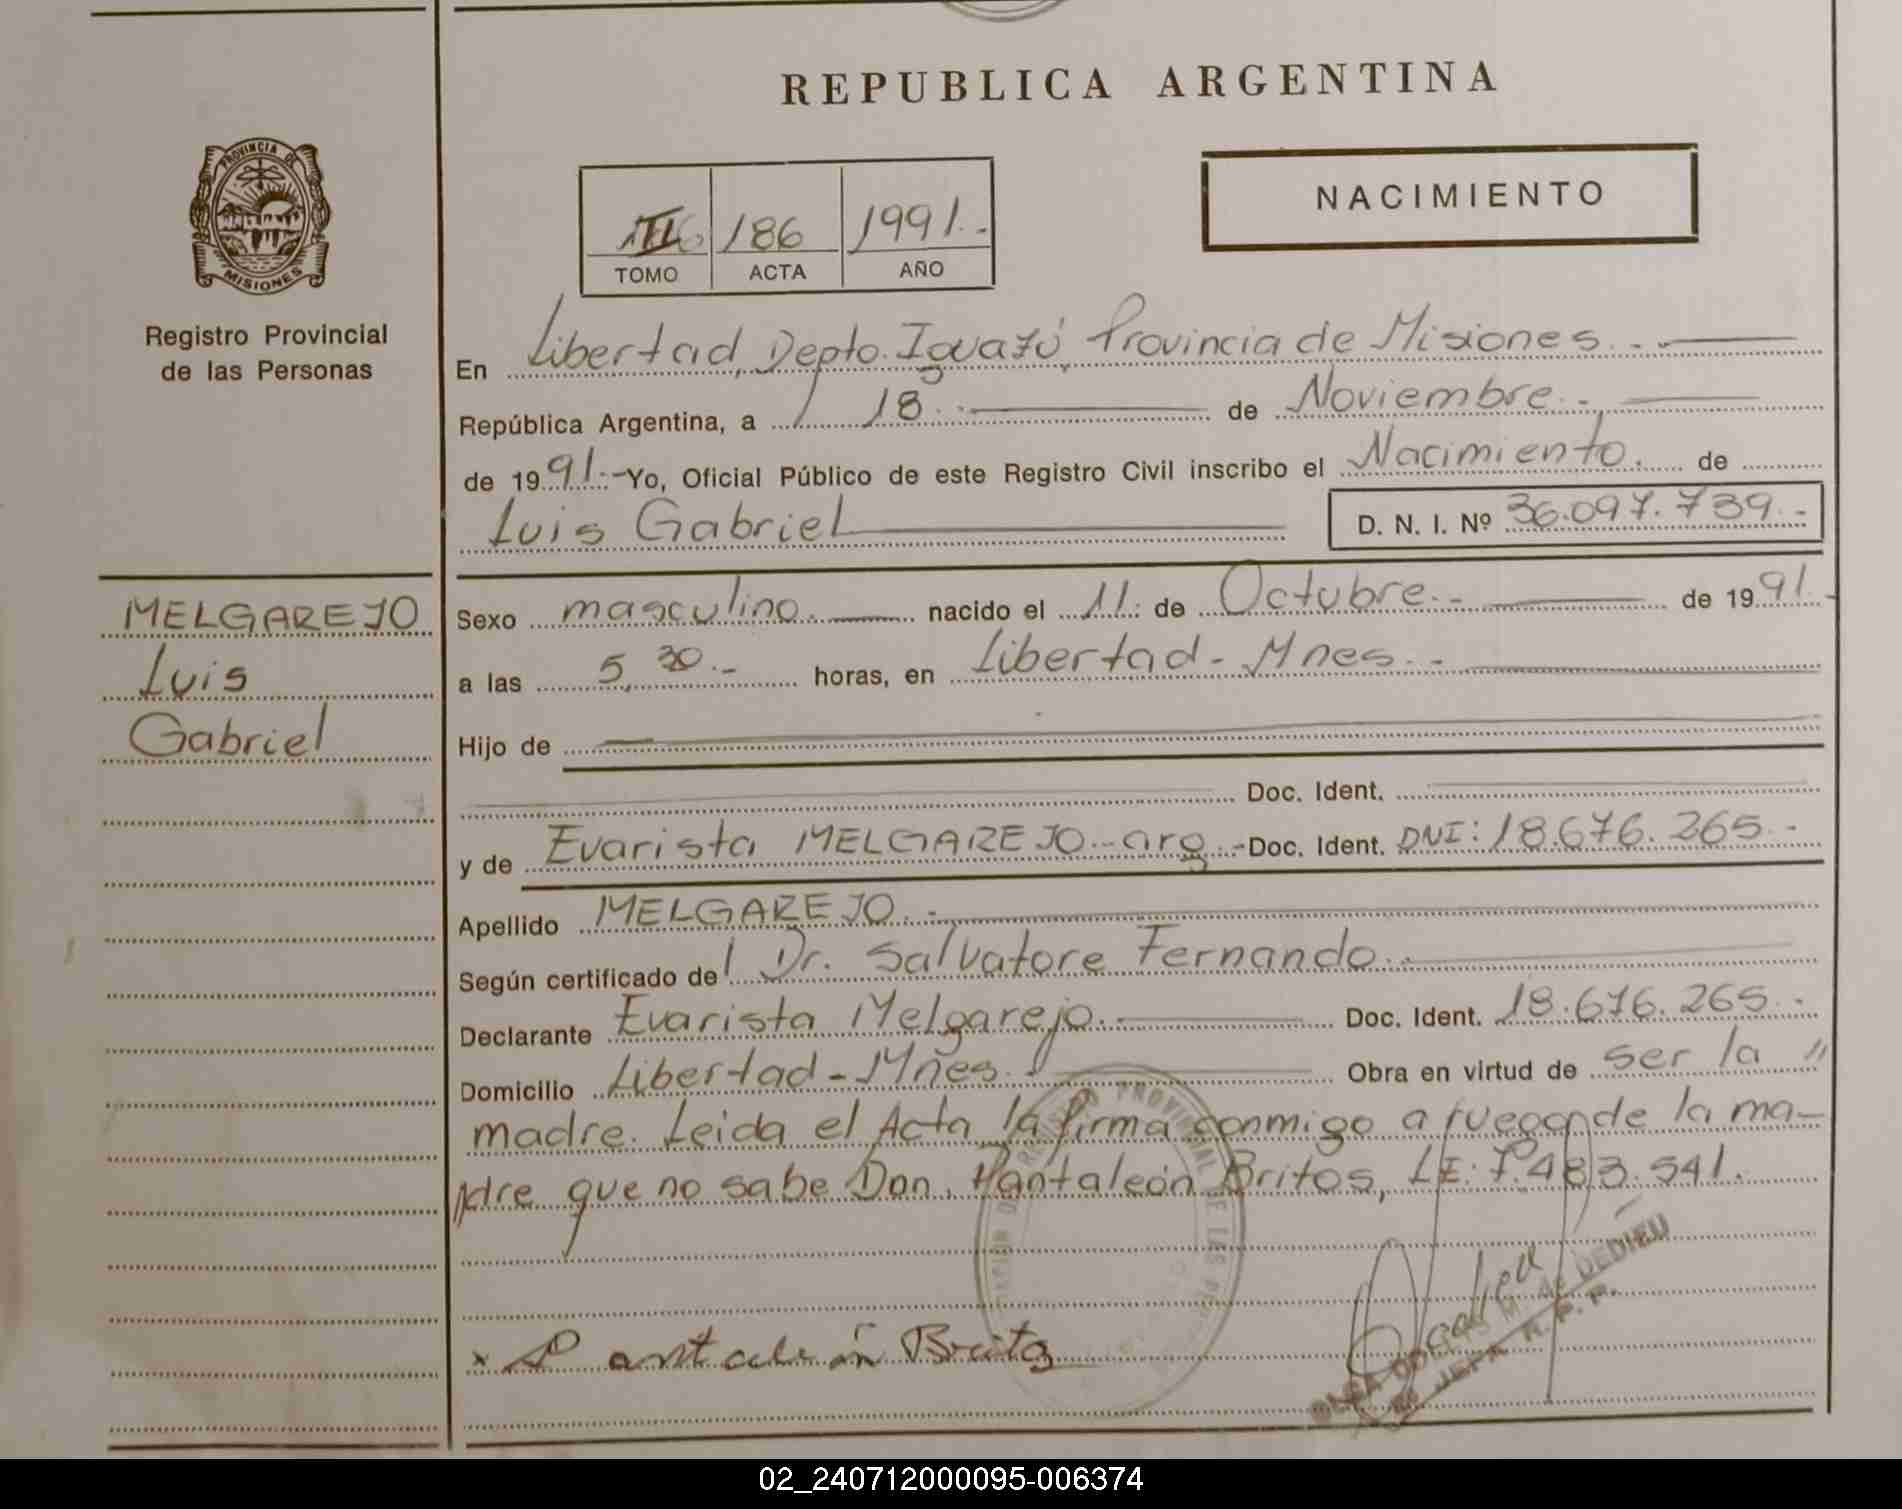 REPUBLICA ARGENTINA
PROVINCIA DE
MISIONES
Registro Provincial
de las Personas
186 1991.-
TOMO ACTA AÑO
NACIMIENTO
En Libertad, Depto. Iguazú, Provincia de Misiones.-
República Argentina, a 18.- de Noviembre.-
de 1991.- Yo, Oficial Público de este Registro Civil inscribo el Nacimiento. de
Luis Gabriel D. N. I. Nº 36.097.739.-
MELGAREJO
Luis
Gabriel
Sexo masculino. nacido el 11. de Octubre.- de 1991.-
a las 5,30.- horas, en Libertad - Mnes.-
Hijo de
Doc. Ident.
y de Evarista MELGAREJO.-arg.-Doc. Ident. DNI: 18.676.265.-
Apellido MELGAREJO.-
Según certificado del Dr. Salvatore Fernando.-
Declarante Evarista Melgarejo. Doc. Ident. 18.676.265.-
Domicilio Libertad - Mnes. Obra en virtud de ser la "
madre. Leida el Acta la firma conmigo a ruego de la ma-
dre que no sabe Don, Pantaleón Britos, LE: 7.483.541.
REGISTRO PROVINCIAL DE LAS
x Pantaleón Brito
OLGA M. de DEDIEU
JEFA R. P. P.
02_240712000095-006374